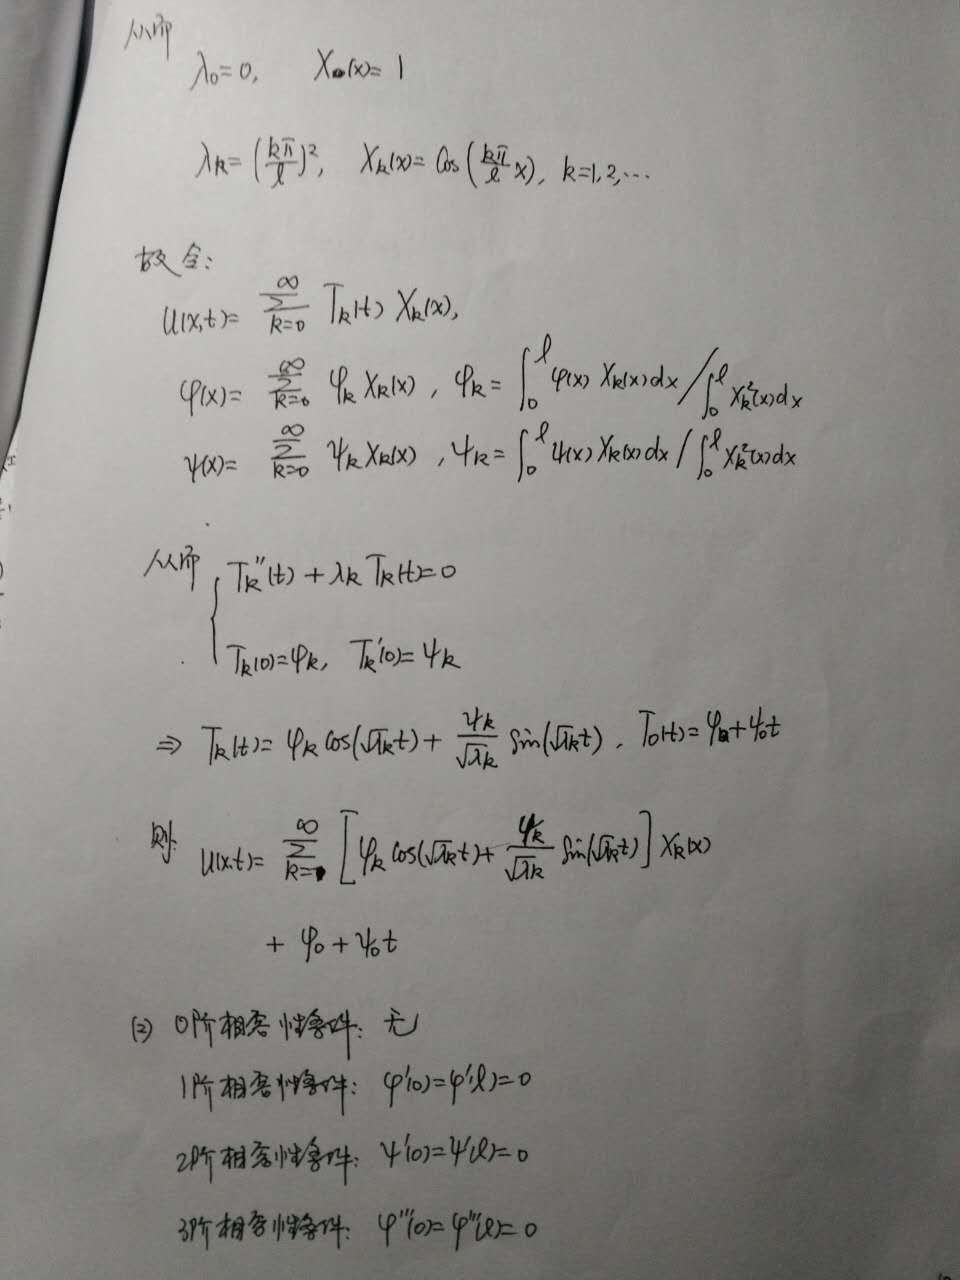 从而
λ₀=0, X₀(x)=1
λk=(kπ/l)², Xk(x)=Cos(kπ/l x), k=1,2,⋯
故令:
u(x,t)=∑_{k=0}^{∞} Tk(t) Xk(x),
φ(x)=∑_{k=0}^{∞} φk Xk(x), φk=∫₀^l φ(x) Xk(x)dx/∫₀^l Xk²(x)dx
ψ(x)=∑_{k=0}^{∞} ψk Xk(x), ψk=∫₀^l ψ(x) Xk(x)dx/∫₀^l Xk²(x)dx
从而
Tk''(t)+λk Tk(t)=0
Tk(0)=φk, Tk'(0)=ψk
⇒ Tk(t)=φk cos(√λk t)+ψk/√λk Sin(√λk t), T₀(t)=φ₀+ψ₀t
则: u(x,t)=∑_{k=1}^{∞} [φk cos(√λk t)+ψk/√λk Sin(√λk t)] Xk(x)
+ φ₀+ψ₀t
(2) 0阶相容性条件: 无
1阶相容性条件: φ'(0)=φ'(l)=0
2阶相容性条件: ψ'(0)=ψ'(l)=0
3阶相容性条件: φ'''(0)=φ'''(l)=0